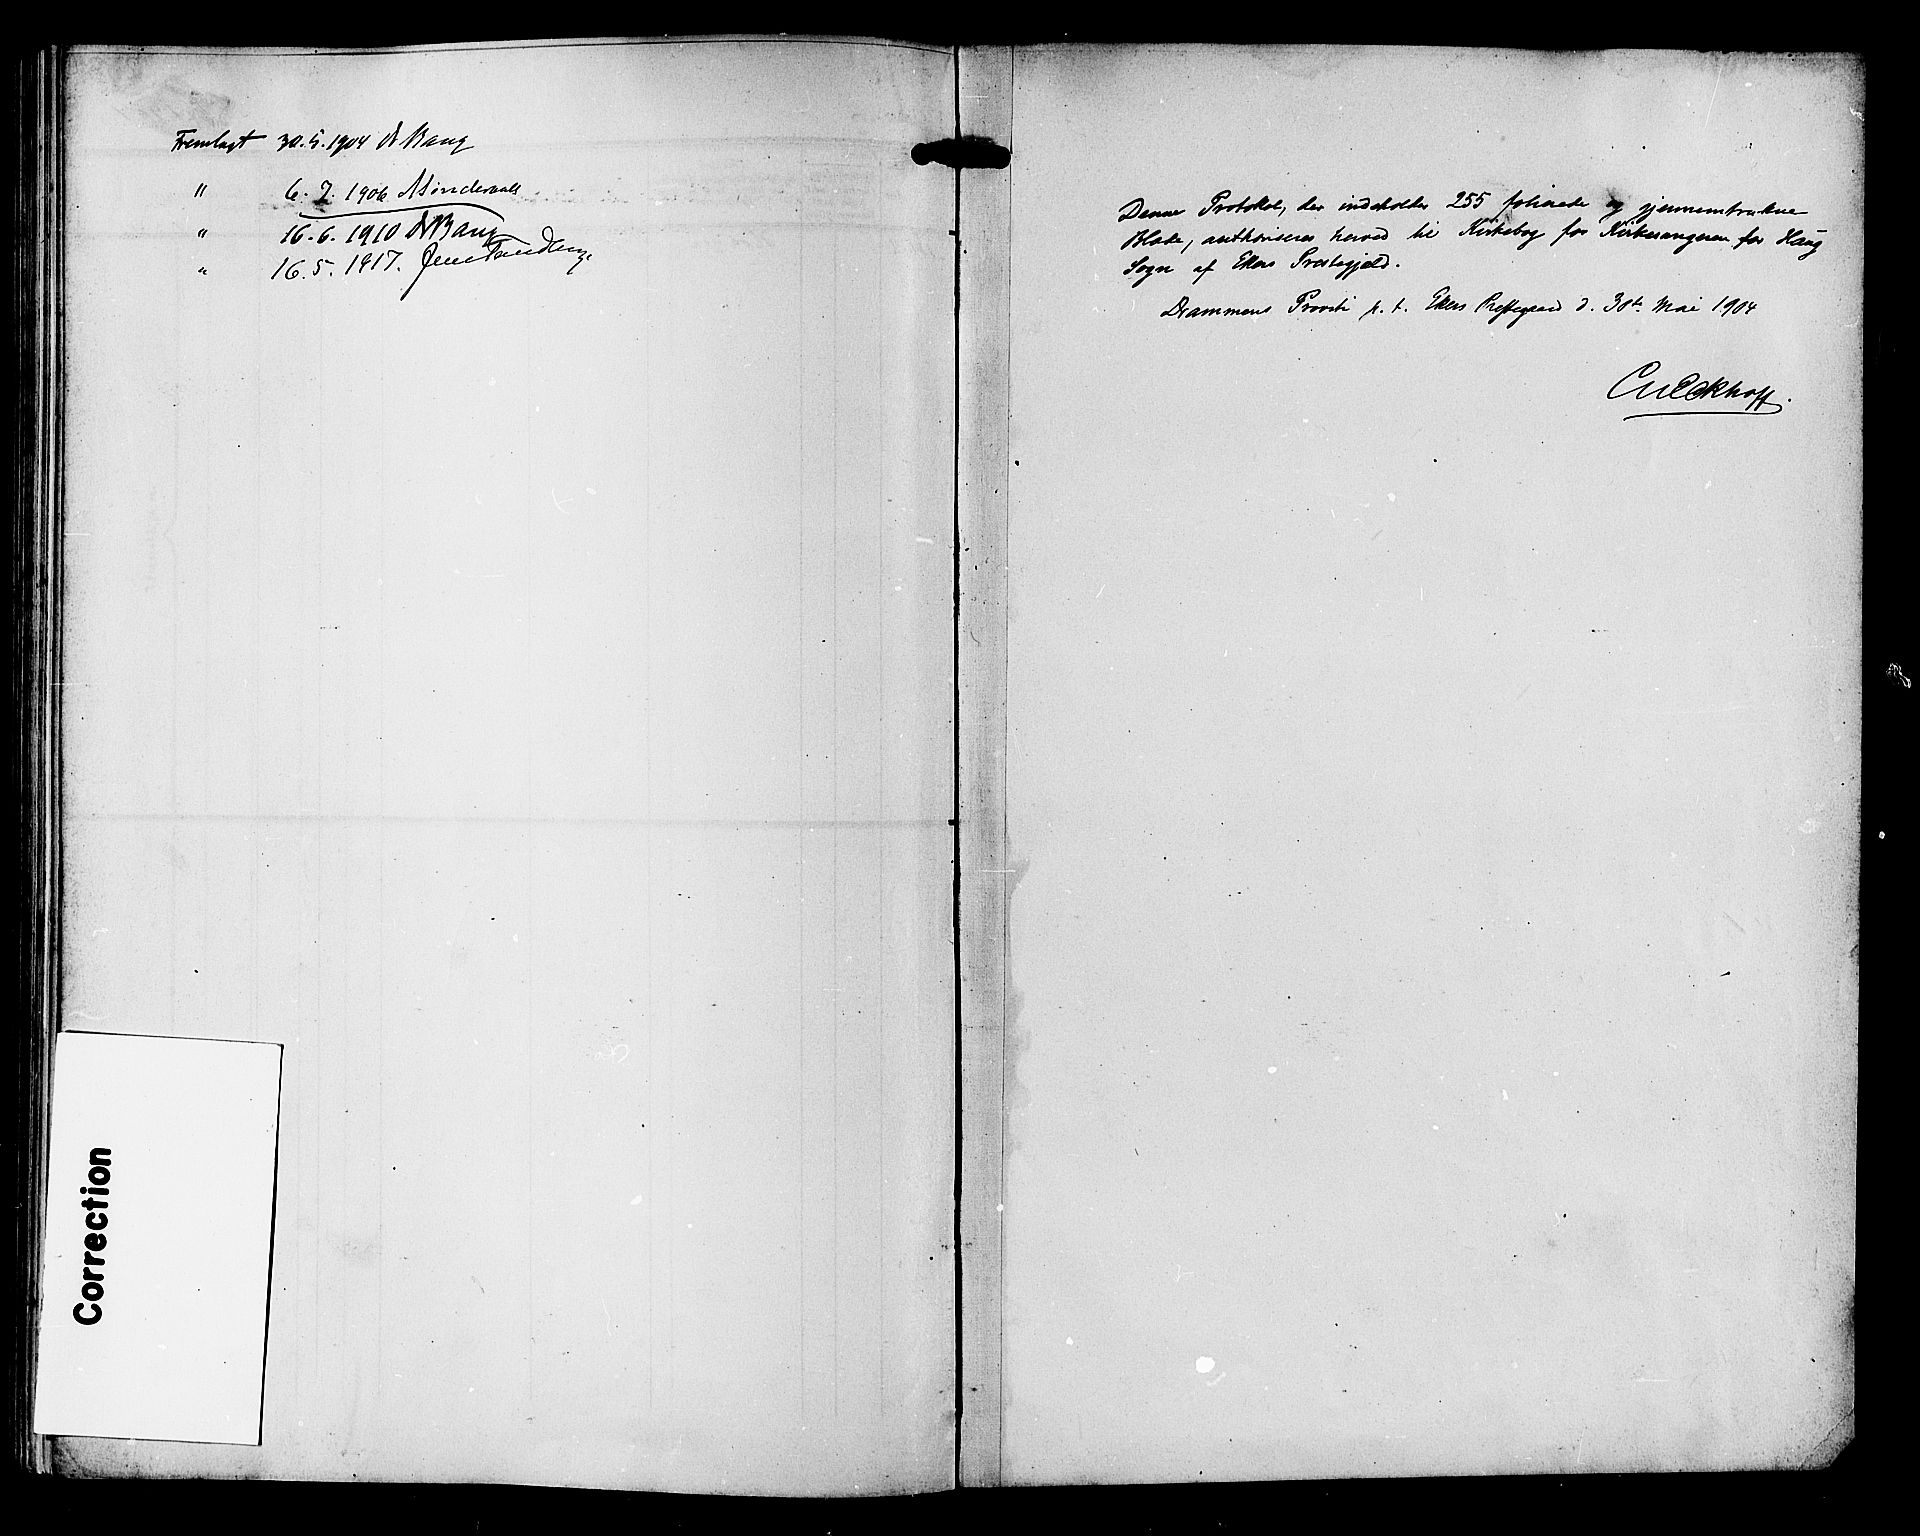 Fremlagt 30.5.1904 A Bang
" 6. 7. 1906
" 16.6.1910 A Bang
" 16.5.1917.
Correction
Denne Protokol, der indeholder 255 folierede og gjennemtrukne
Blade, authoriseres herved til Kirkebog for Kirkesangeren for Haug
Sogn af Ekers Præstegjæld.
Drammens Provsti p. t. Ekers Prestegaard d. 30te Mai 1904
Eckhoff.